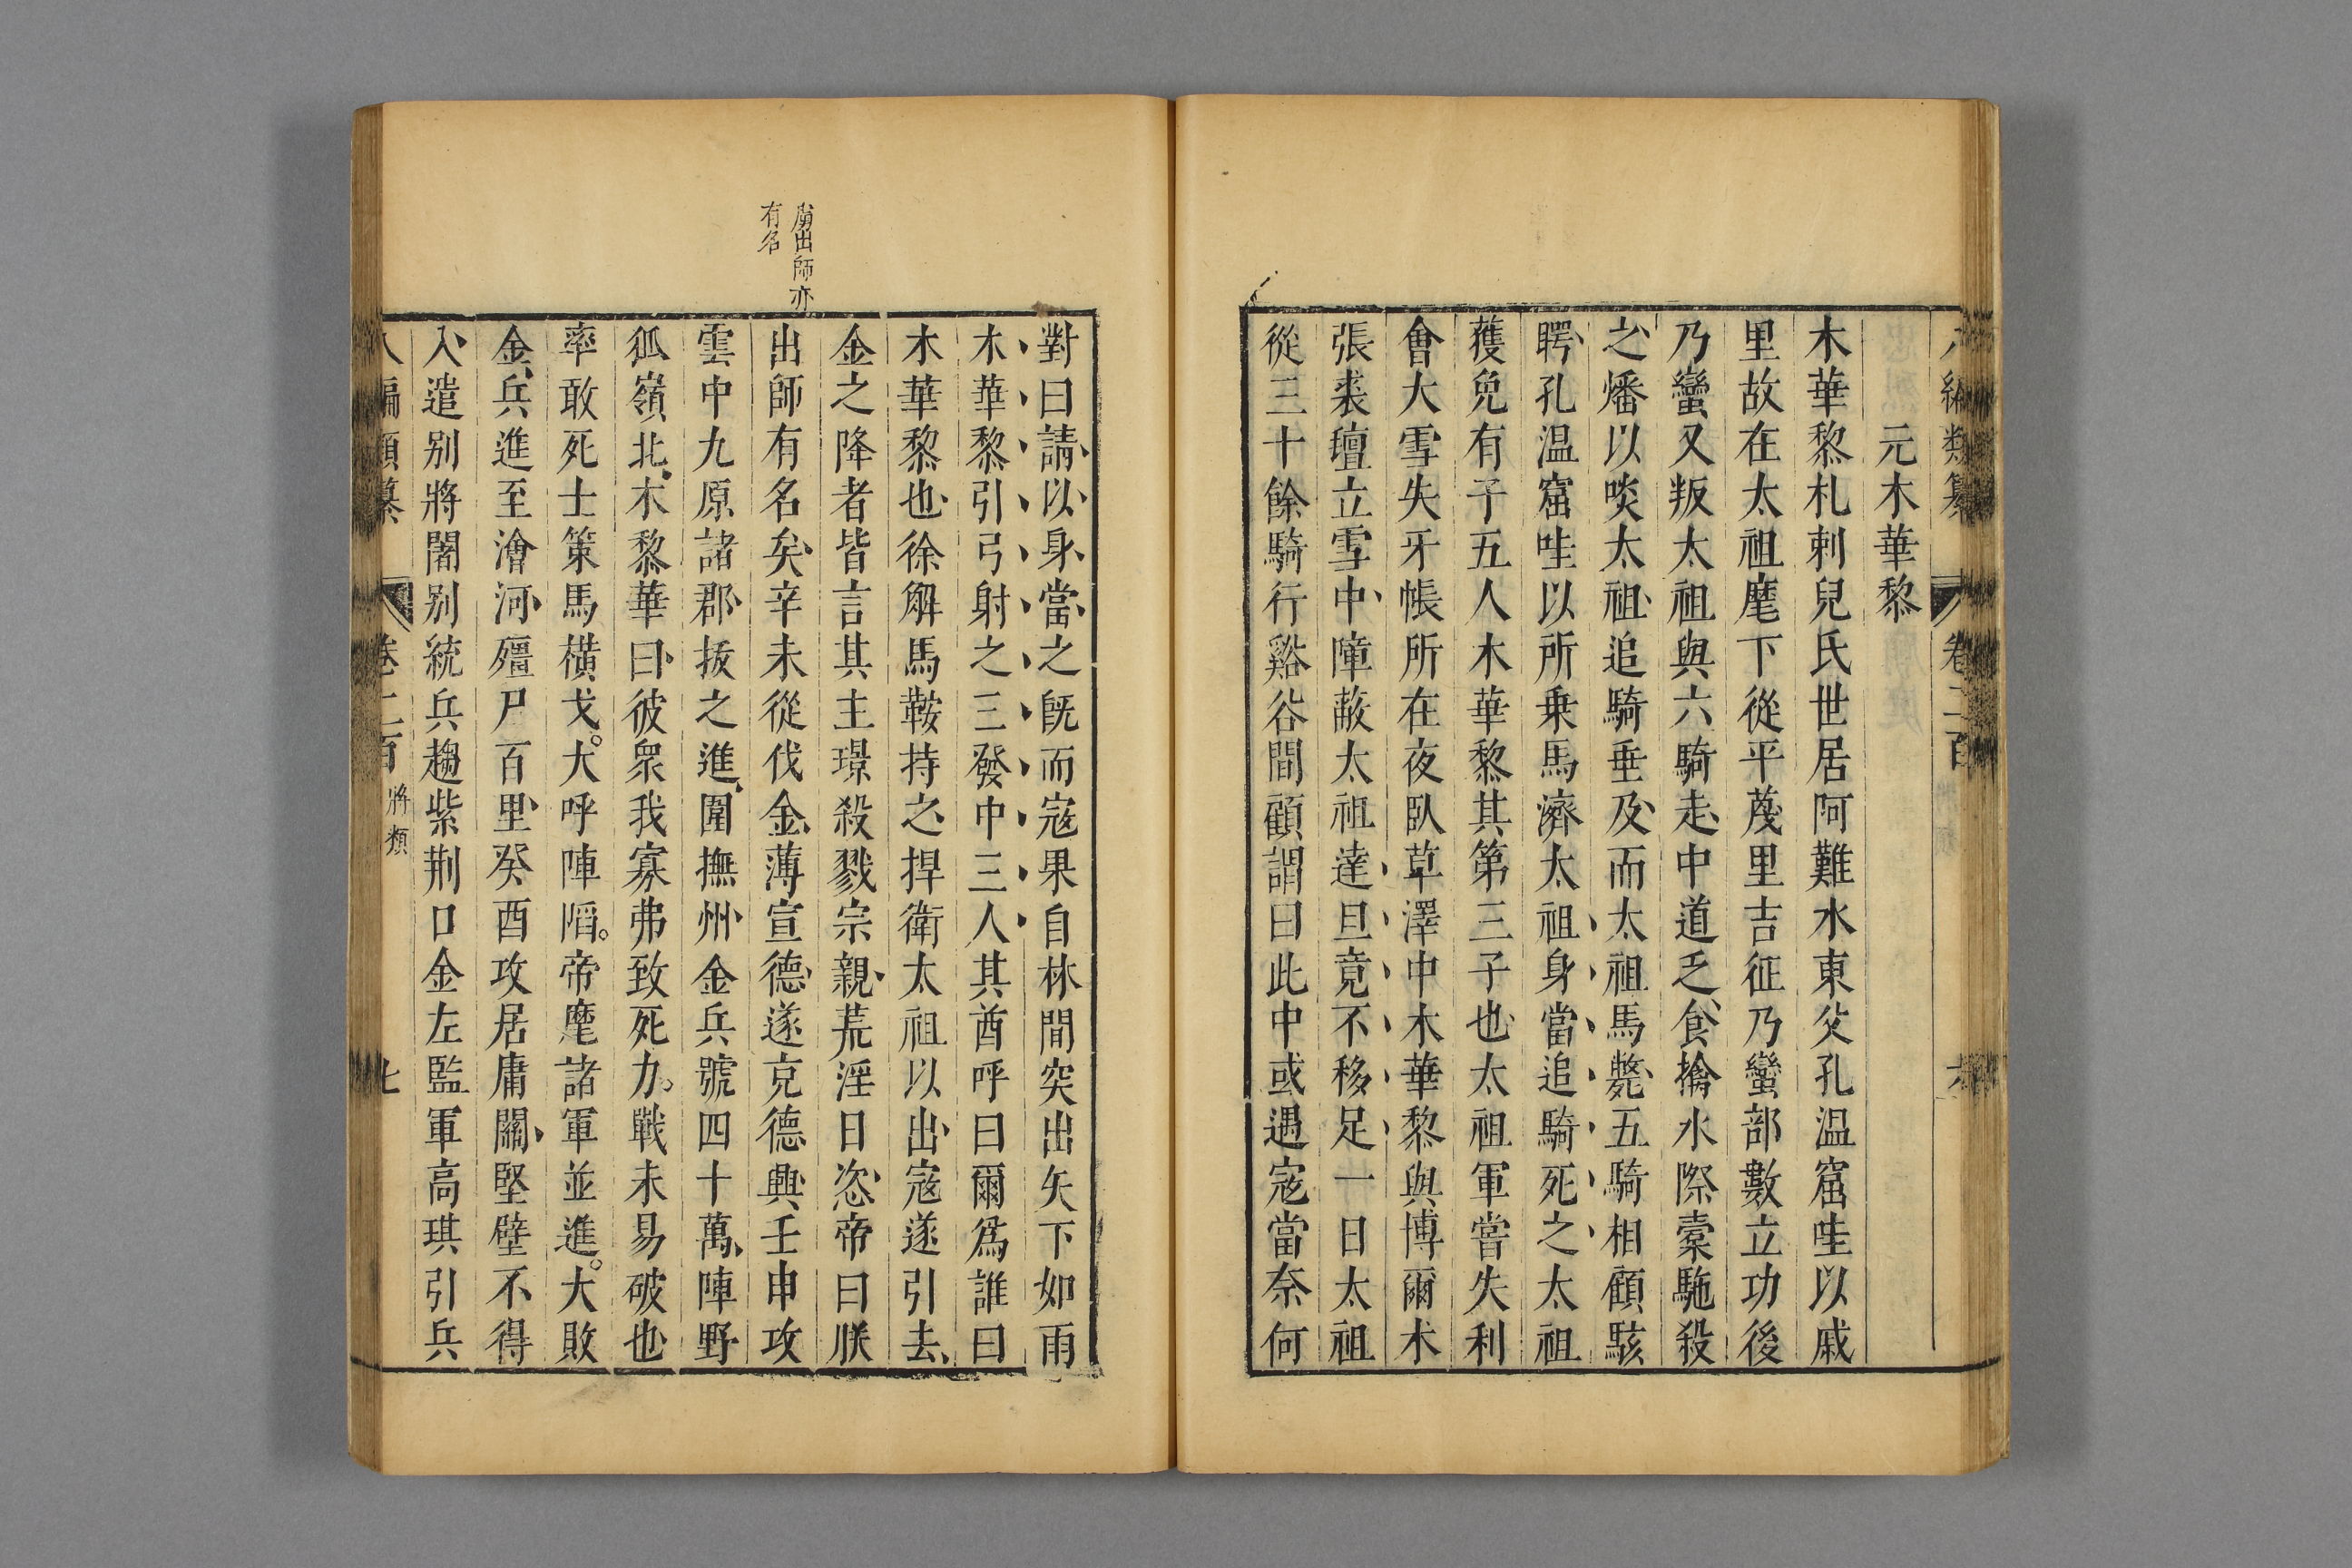 八編類纂 卷二百 六
元木華黎
木華黎札剌兒氏世居阿難水東父孔温窟哇以戚
里故在太祖麾下從平蔑里吉征乃蠻部數立功後
乃蠻又叛太祖與六騎走中道乏食擒水際橐駞殺
之燔以啖太祖追騎垂及而太祖馬斃五騎相顧駭
愕孔温窟哇以所乗馬濟太祖身當追騎死之太祖
獲免有子五人木華黎其第三子也太祖軍嘗失利
會大雪失牙帳所在夜臥草澤中木華黎與博爾木
張裘氊立雪中障蔽太祖達旦竟不移足一日太祖
從三十餘騎行谿谷間顧謂曰此中或遇寇當奈何
對曰請以身當之旣而寇果自林間突出矢下如雨
木華黎引弓射之三發中三人其酋呼曰爾爲誰曰
木華黎也徐觧馬鞍持之捍衛太祖以出寇遂引去
金之降者皆言其主璟殺戮宗親荒淫日恣帝曰朕
虜出師亦
有名
出師有名矣辛未從伐金薄宣德遂克德興壬申攻
雲中九原諸郡拔之進圍撫州金兵號四十萬陣野
狐嶺北木黎華曰彼衆我寡弗致死力戰未易破也
率敢死士策馬橫戈大呼陣陷帝麾諸軍並進大敗
金兵進至澮河殭尸百里癸酉攻居庸關堅壁不得
入遣别將闍别統兵趨紫荆口金左監軍高琪引兵
八編類纂 卷二百 將類 七